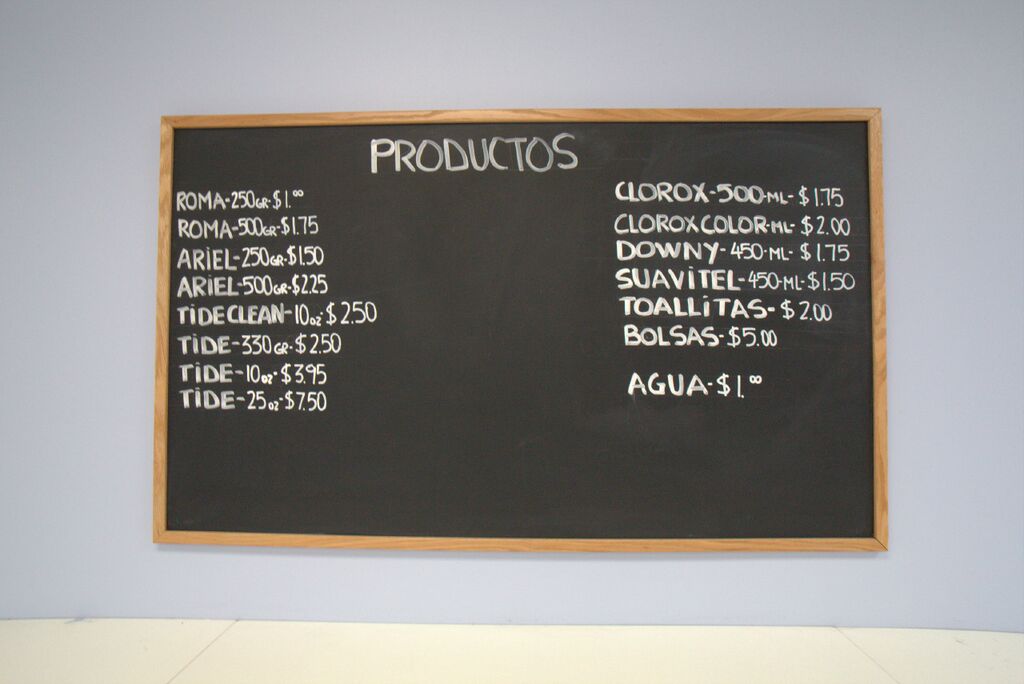 PRODUCTOS
ROMA-250GR-$1.00
ROMA-500GR-$1.75
ARIEL-250GR-$1.50
ARIEL-500GR-$2.25
TIDE CLEAN-10oz-$2.50
TIDE-330GR-$2.50
TIDE-10oz-$3.95
TIDE-25oz-$7.50
CLOROX-500-ML-$1.75
CLOROX COLOR-ML-$2.00
DOWNY-450-ML-$1.75
SUAVITEL-450-ML-$1.50
TOALLITAS-$2.00
BOLSAS-$5.00
AGUA-$1.00